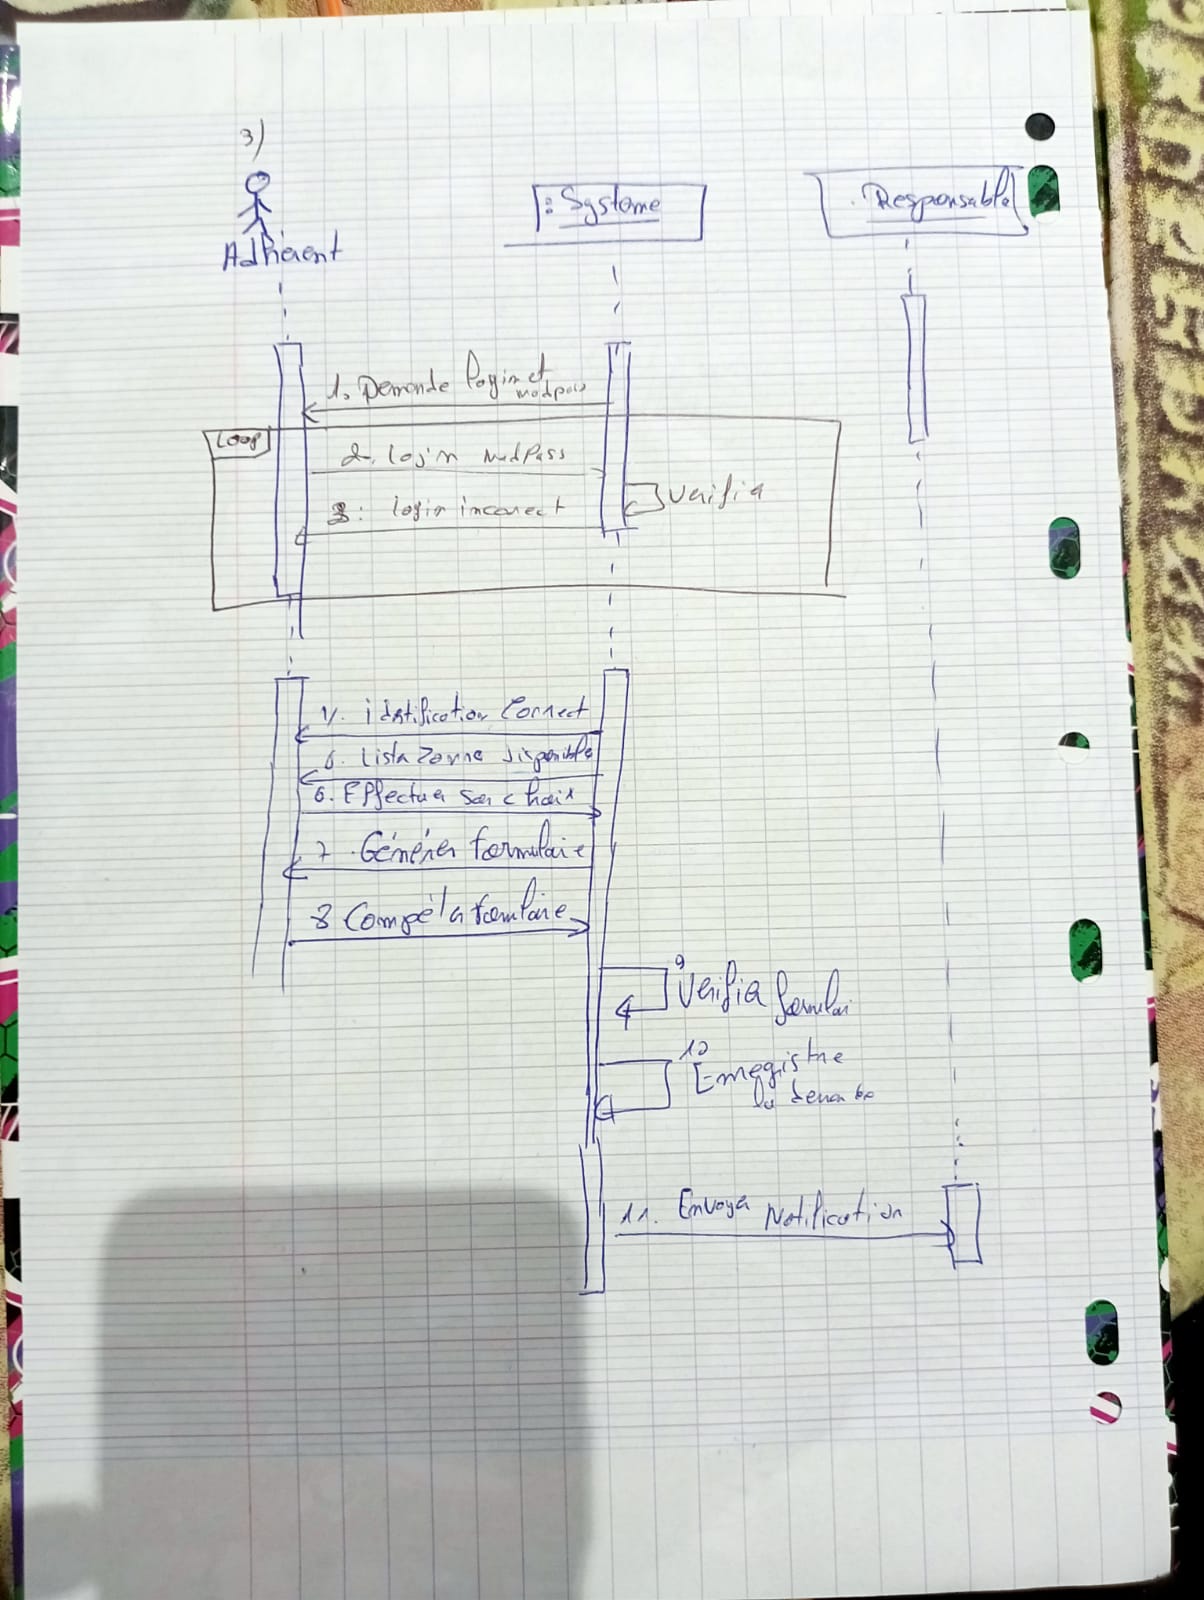 3)
: Systeme
Responsable
Adhérent
1. Demande login et
modpass
Loop
2. login mdPass
verifie
3: login incorrect
4. idatification Correct
5. Liste Zonne disponible
6. Effectuer son choix
7. Générer formulaire
8 Compéte formlaire
9
Verifie formulai
10
Enregistre
la demande
11. Envoyer Notification